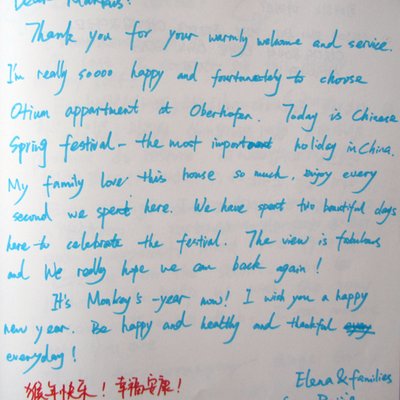 Dear Markus!
Thank you for your warmly welcome and service.
I'm really soooo happy and fourtunately to choose
Otium appartment at Oberhofen. Today is Chinese
Spring festival - the most important holiday in China.
My family love this house so much, enjoy every
second we spent here. We have spent two beautiful days
here to celebrate the festival. The view is fabulous
and We really hope we can back again!
It's Monkey's -year now! I wish you a happy
new year. Be happy and healthy and thankful
everyday!
猴年快乐！幸福安康！
Elena & families